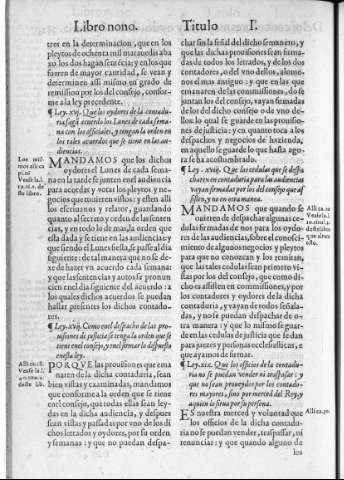 Libro nono. Titulo I.
tres en la determinacion, que en los
pleytos de ochenta mil marauedis aba
xo los dos hagan sentécia; y en los que
fueren de mayor cantidad, se vean y
determinen assi mismo en grado de
remission por los del consejo, confor-
me a la ley precedente.
¶ Ley .xvj. Que los oydores de la contadu-
ria hagã acuerdo los Lunes de cada sema
na con los officiales, y tengan la orden en
los tales acuerdos que se tiene en las au-
diencias.
MANDAMOS que los dichos
oydores el Lunes de cada sema
na en la tarde se junten en el audiencia
para acordar y votar los pleytos y ne-
gocios que tuuieren vistos: y esten alli
los escriuanos y relator, guardando
quanto al secreto y orden de las senten
cias, y en todo lo de mas, la orden que
esta dada y se tiene en las audiencias: y
que siendo el Lunes fiesta, se passe al dia
siguiente: de tal manera que no se de-
xe de hazer vn acuerdo cada semana
y que las sentencias y autos se pronun
cien en el dia siguiente del acuerdo: a
los quales dichos acuerdos se puedan
hallar presentes los dichos contado-
res.
¶ Ley .xvij. Como en el despacho de las pro-
uisiones de justicia se tenga la orden que se
tiene en el consejo, y en el firmar lo dispuesto
en esta ley.
PORQVE las prouisiones que ema
naren de la dicha contaduria, sean
bien vistas y examinadas, mandamos
que conforme a la orden que se tiene
en el consejo, que todas ellas sean ley-
das en la dicha audiencia, y despues
sean vistas y passadas por vno de los di
chos letrados y oydores, por su orden
y semanas: y que no puedan despa-
char sin la señal del dicho semanero, y
que las dichas prouisiones sean firma-
das de todos los letrados, y de los dos
contadores, o del vno dellos, alome-
nos el mas antiguo: y en las cartas que
emanaren de la dicha contaduria, do se
juntan los del consejo, vayan firmadas
de los del dicho consejo o de vno de-
llos: lo qual se guarde en las prouisio-
nes de justicia; y en quanto toca a los
despachos y negocios de hazienda,
en aquello se guarde lo que hasta ago-
ra se ha acostumbrado.
¶ Ley .xviij. Que las cedulas que se despa
charen en contaduria para las audiencias
vayan firmadas por los del consejo que as
sisten, y no en otra manera.
MANDAMOS que quando se
ouieren de despachar algunas ce-
dulas firmadas de nos para los oydo-
res de las audiencias, sobre el conosci-
miento de algunos negocios y pleytos
para que no conozcan y los remitan,
que las tales cedulas sean primero vi-
stas por los del consejo, que como di-
cho es assisten en comissiones, y por
los contadores y oydores de la dicha
contaduria, y vayan de todos señala-
das, y no se puedan despachar de o-
tra manera: y que lo mismo se guar-
de en las cedulas de justicia que se dan
para juezes y personas ecclesiasticas, e
que ayamos de firmar.
¶ Ley .xix. Que los officios de la contadu-
ria no se puedan vender ni traspassar: y
que no sean proueydos por los contado-
res mayores, sino por merced del Rey, y
a quien lo sirua por su persona.
ES nuestra merced y voluntad que
los officios de la dicha contadu
ria no se puedan vender, traspassar, ni
renunciar: y que quando alguno de
los